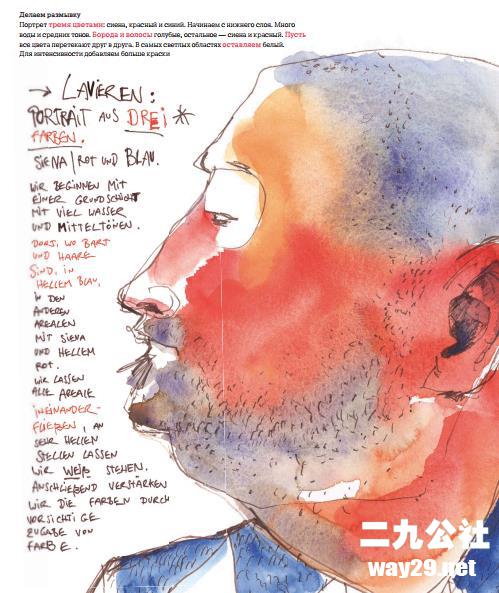 Делаем размывку
Портрет тремя цветами: сиена, красный и синий. Начинаем с нижнего слоя. Много
воды и средних тонов. Борода и волосы голубые, остальное — сиена и красный. Пусть
все цвета перетекают друг в друга. В самых светлых областях оставляем белый.
Для интенсивности добавляем больше краски
→ LAVIEREN:
PORTRAIT AUS DREI *
FARBEN.
SIENA | ROT UND BLAU.
WIR BEGINNEN MIT
EINER GRUNDSCHICHT
MIT VIEL WASSER
UND MITTELTÖNEN.
DORT, WO BART
UND HAARE
SIND, IN
HELLEM BLAU,
IN DEN
ANDEREN
AREALEN
MIT SIENA
UND HELLEM
ROT.
WIR LASSEN
ALLE AREALE
INEINANDER-
FLIEßEN, AN
SEHR HELLEN
STELLEN LASSEN
WIR WEIß STEHEN.
ANSCHLIEßEND VERSTÄRKEN
WIR DIE FARBEN DURCH
VORSICHTIGE
ZUGABE VON
FARBE.
二九公社
way29.net